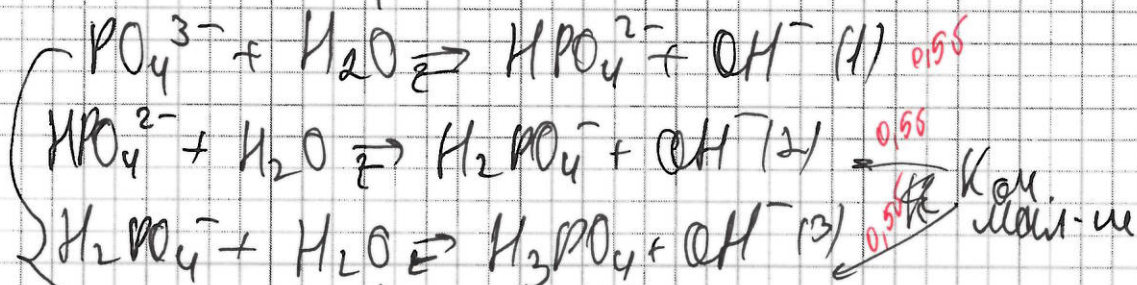 PO₄³⁻ + H₂O ⇄ HPO₄²⁻ + OH⁻ (1) 0,5б
HPO₄²⁻ + H₂O ⇄ H₂PO₄⁻ + OH⁻ (2) 0,5б
H₂PO₄⁻ + H₂O ⇄ H₃PO₄ + OH⁻ (3) 0,5б